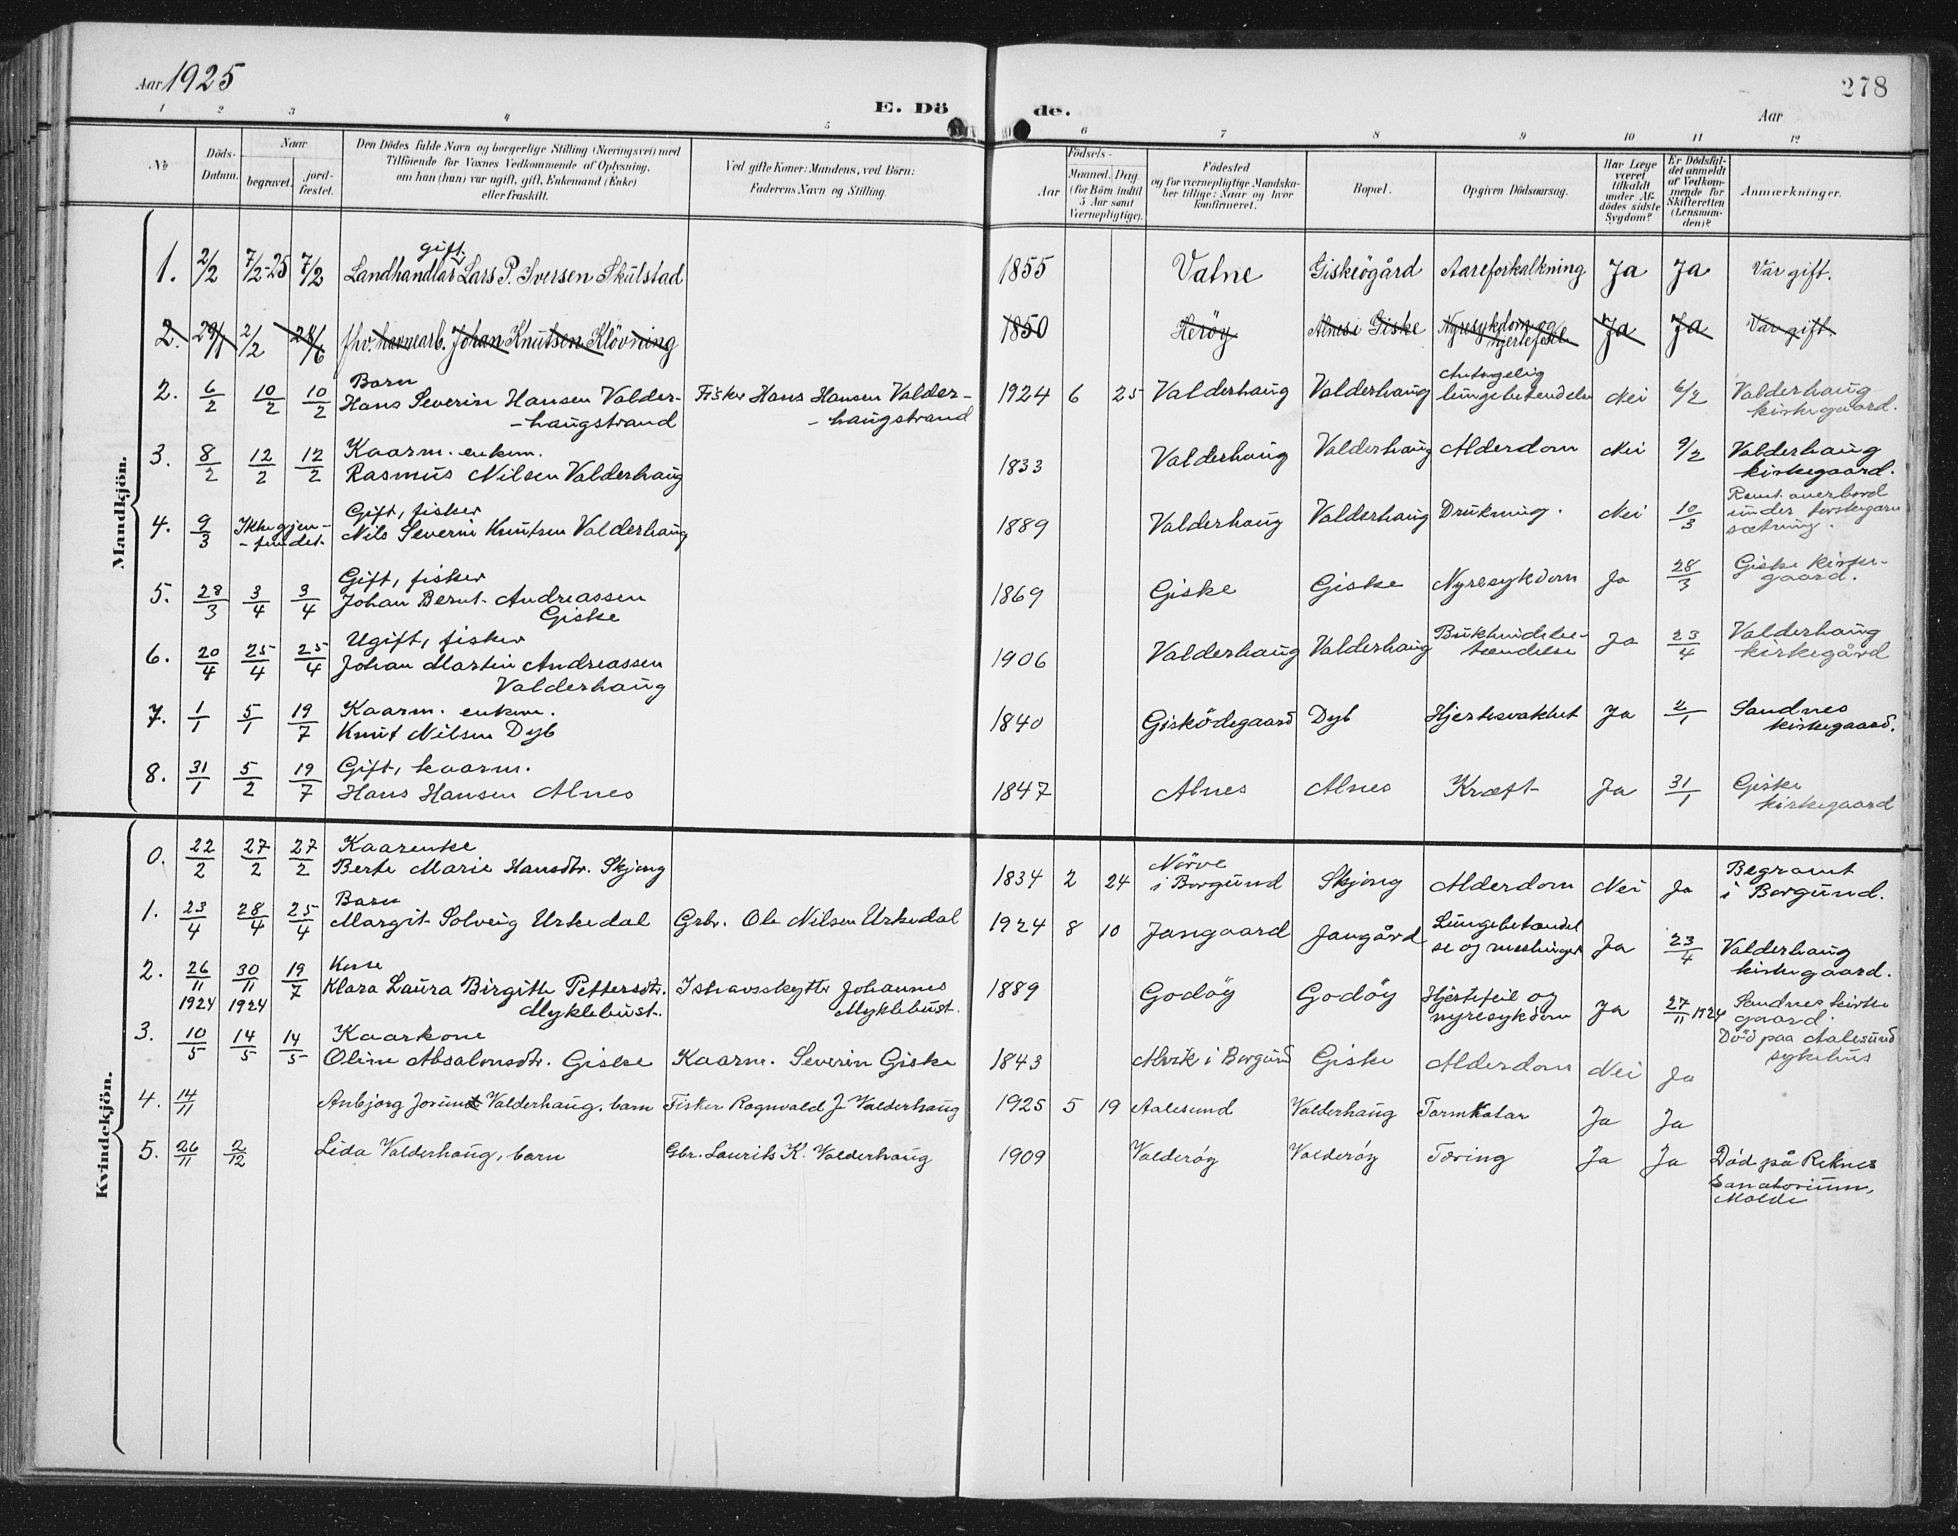 Aar 1925
E. Dö
de.
Aar
278
1 2 3 4 5 6 7 8 9 10 11 12
No
Döds-
Datum.
Naar
begravet.
jord-
fæstet.
Den Dödes fulde Navn og borgerlige Stilling (Næringsvei) med
Tilföiende for Voxnes Vedkommende af Oplysning,
om han (hun) var ugift, gift, Enkemand (Enke)
eller fraskilt.
Ved gifte Koner: Mandens, ved Börn:
Faderens Navn og Stilling.
Födsels-
Aar
Maaned. Dag
(for Börn indtil
5 Aar samt
Værnepligtige).
Födested
og for værnepligtige Mandska-
ber tillige: Naar og hvor
konfirmeret.
Bopæl.
Opgiven Dödsaarsag.
Har Læge
været
tilkaldt
under Af-
dödes sidste
Sygdom?
Er Dödsfal-
det anmeldt
af Vedkom-
mende for
Skifteretten
(Lensman-
den)?
Anmærkninger.
Mandkjön.
gift
1. 2/2 7/2-25 7/2 Landhandlar Lars P. Iversen Skulstad 1855 Vatne Giskeögård Aareforkalkning Ja Ja Var gift.
2. 29/1 2/2 28/6 fhv. havnearb. Johan Knutsen Klövning 1850 Heröy Alnes i Giske Nyresykdom og
hjertefeil Ja Ja Var gift.
Barn
2. 6/2 10/2 10/2 Hans Severin Hansen Valder-
-haugstrand Fisker Hans Hansen Valder-
-haugstrand 1924 6 25 Valderhaug Valderhaug Antagelig
lungebetendelse Nei 6/2 Valderhaug
kirkegaard.
3. 8/2 12/2 12/2 Kaarm. enkem.
Rasmus Nilsen Valderhaug 1833 Valderhaug Valderhaug Alderdom Nei 9/2 Valderhaug
kirkegaard.
4. 9/3 Ikke gjen-
-fundet. Gift, fisker
Nils Severin Knutsen Valderhaug 1889 Valderhaug Valderhaug Drukning. Nei 10/3 overbord
under torskegarn
sætning.
5. 28/3 3/4 3/4 Gift, fisker
Johan Bernt Andreassen
Giske 1869 Giske Giske Nyresykdom Ja 28/3 Giske kirke-
gaard.
6. 20/4 25/4 25/4 Ugift, fisker
Johan Martin Andreassen
Valderhaug 1906 Valderhaug Valderhaug Bukhindebe-
tændelse Ja 23/4 Valderhaug
kirkegård
7. 1/1 5/1 19/7 Kaarm. enkem.
Knut Nilsen Dyb 1840 Gisködegaard Dyb Hjertesvakhet Ja 2/1 Sandnes
kirkegaard.
8. 31/1 5/2 19/7 Gift, kaarm.
Hans Hansen Alnes 1847 Alnes Alnes Kræft Ja 31/1 Giske
kirkegaard
Kvindekjön.
0. 22/2 27/2 27/2 Kaarenke
Berte Marie Hansdtr. Skjong 1834 2 24 Nörve
i Borgund Skjong Alderdom Nei Ja Begravet
i Borgund.
Barn
1. 23/4 28/4 25/4 Margit Solveig Urkedal Grbr. Ole Nilsen Urkedal 1924 8 10 Jangaard Jangård Lungebetændel
se og meslinger Ja 23/4 Valderhaug
kirkegaard.
2. 26/11 1924 30/11 1924 19/7 Kone
Klara Laura Birgitte Pettersdtr.
Myklebust. Ishavsskytter Johannes
Myklebust. 1889 Godöy Godöy Hjertefeil og
nyresykdom Ja 27/11 1924 Sandnes kirke
gaard.
Död paa Aalesund
sykehus
3. 10/5 14/5 14/5 Kaarkone
Oline Absalonsdtr. Giske Kaarm. Severin Giske 1843 Alvik i Borgund Giske Alderdom Nei Ja
4. 14/11 Anbjorg Jorunn Valderhaug. barn Fisker Rognvald J Valderhaug 1925 5 19 Aalesund Valderhaug Tarmkatar Ja Ja
5. 26/11 2/12 Lida Valderhaug, barn Gbr. Laurits K. Valderhaug 1909 Valderöy Valderöy Tæring Ja Ja Död på Reknes
Sanatorium,
Molde